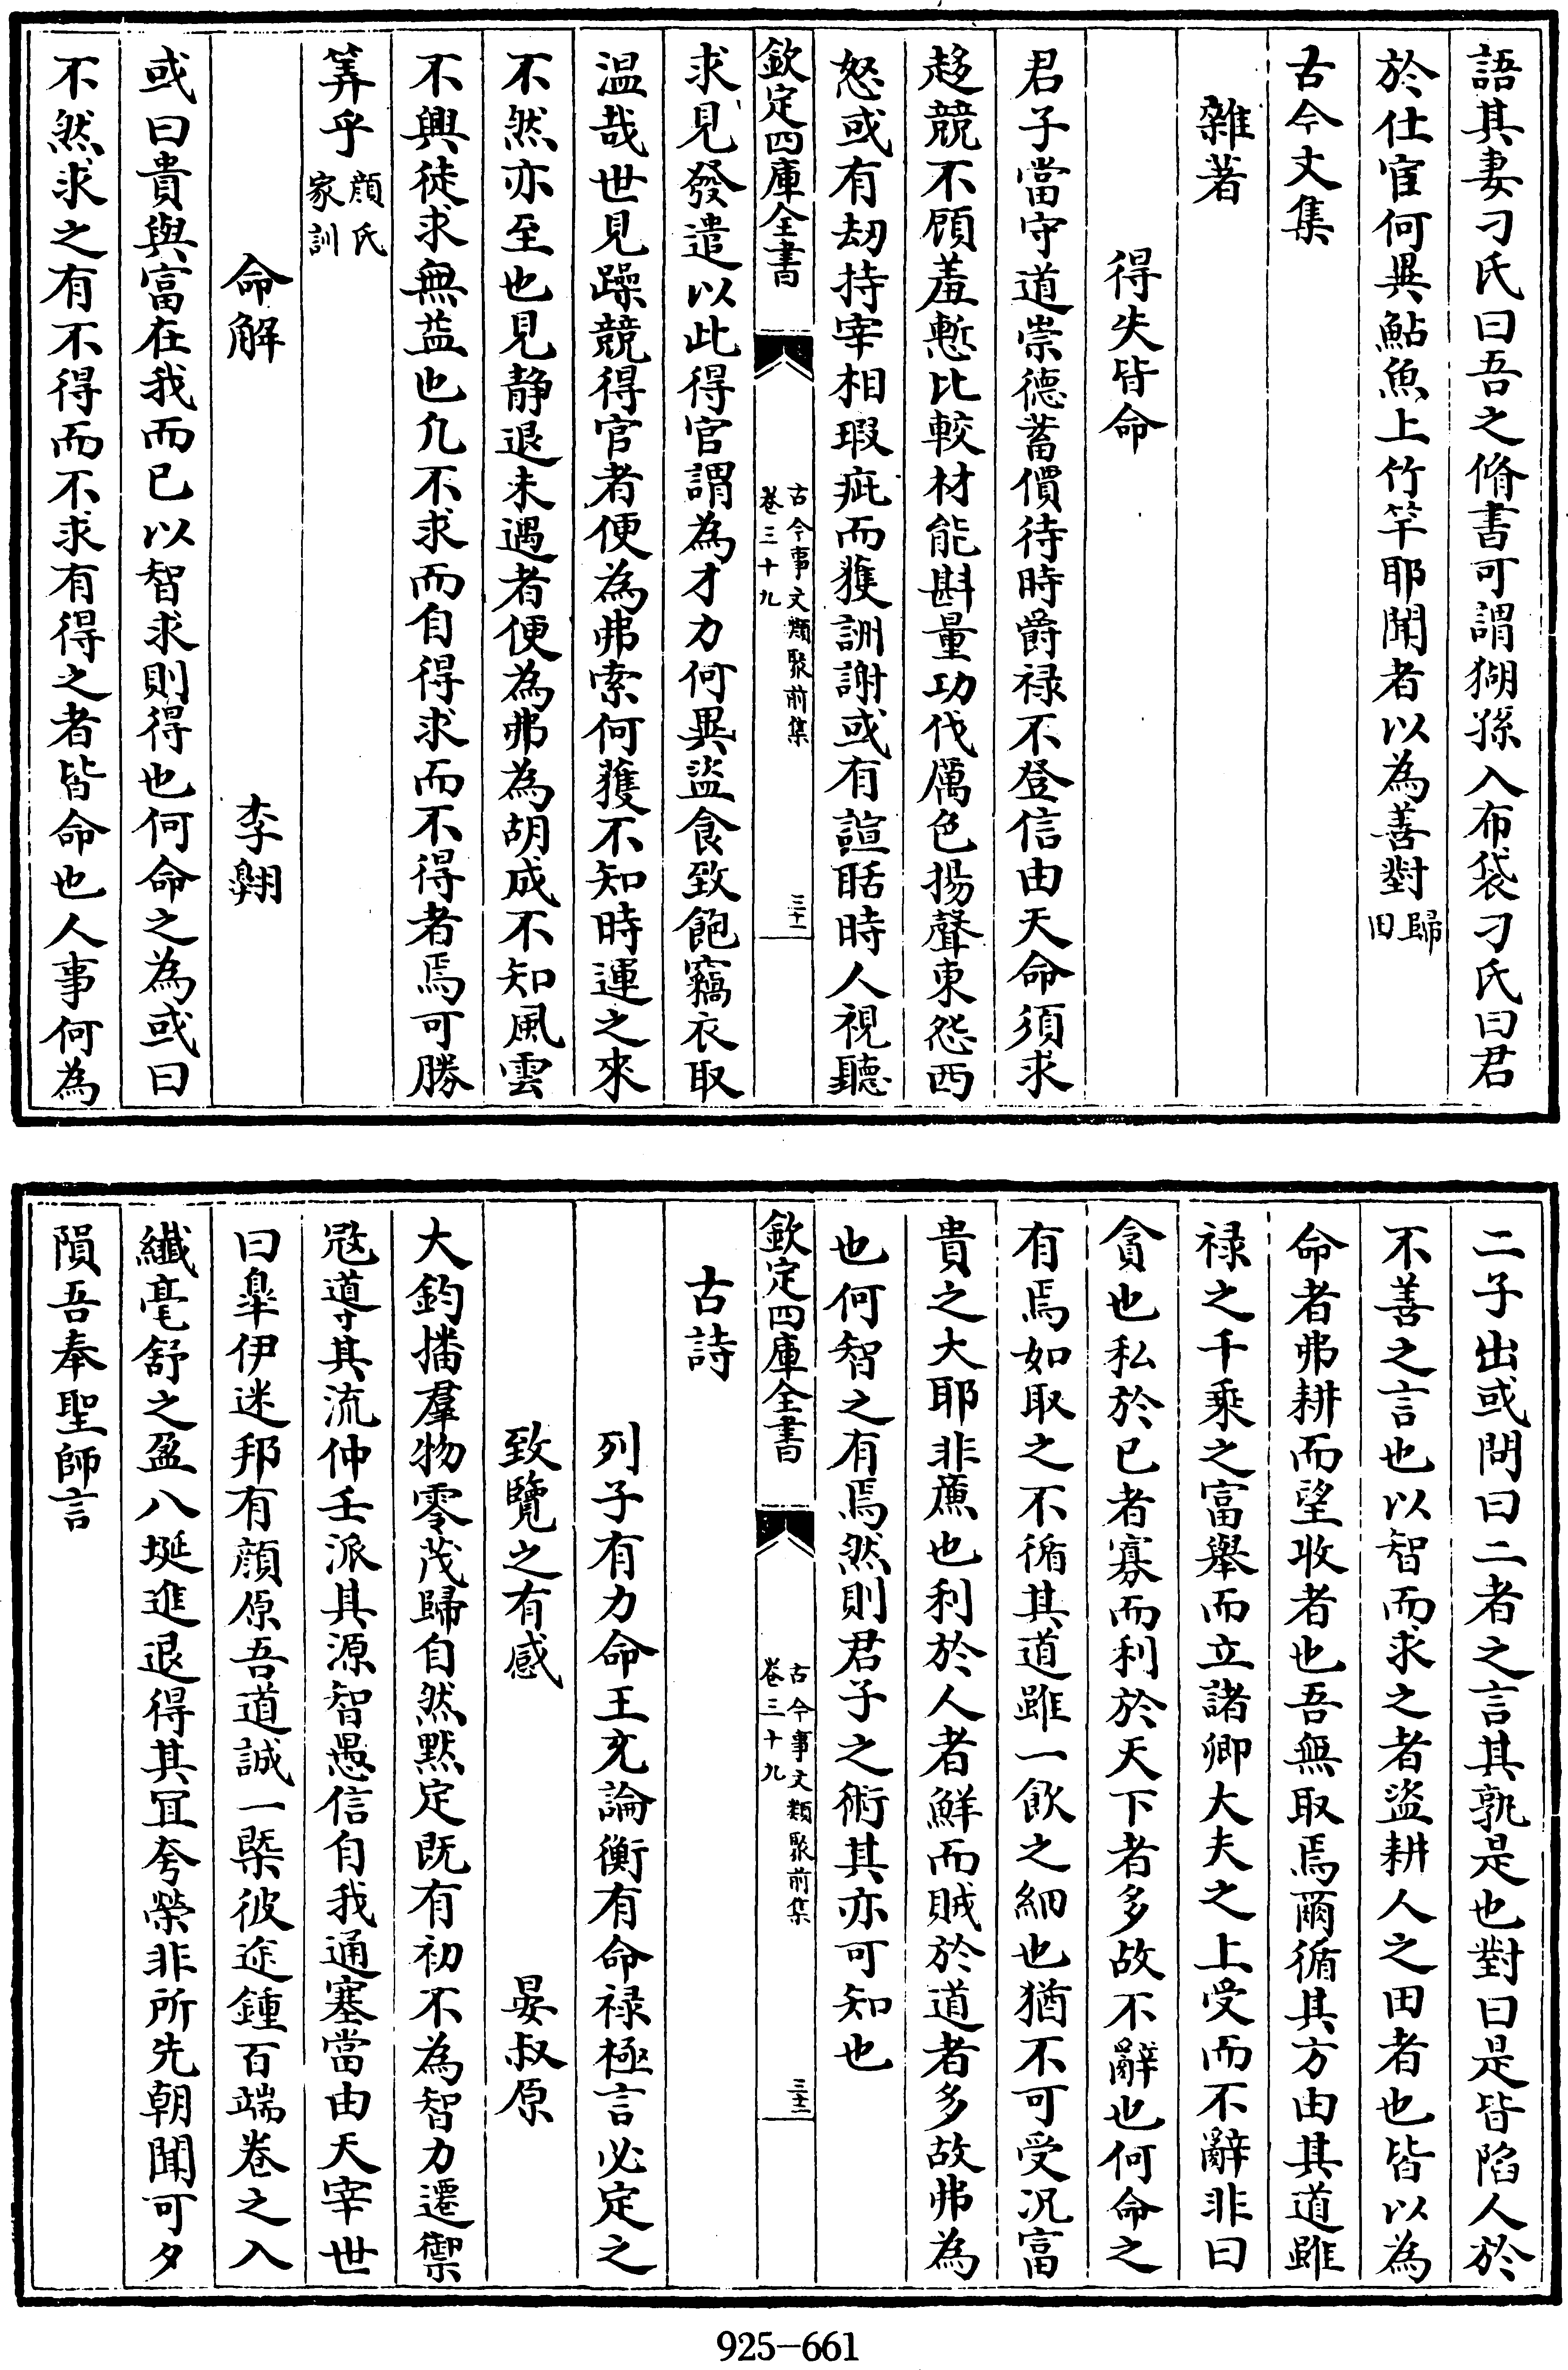 語其妻刁氏曰吾之脩書可謂猢猻入布袋刁氏曰君
於仕宦何異鮎魚上竹竿耶聞者以為善對歸田
古今文集
雜著
得失皆命
君子當守道崇德蓄價待時爵祿不登信由天命須求
趍競不顧羞慙比較材能斟量功伐厲色揚聲東怨西
怒或有劫持宰相瑕疵而獲詶謝或有諠聒時人視聽
欽定四庫全書
古今事文類聚前集
卷三十九
三十一
求見發遣以此得官謂為才力何異盜食致飽竊衣取
温哉世見躁競得官者便為弗索何獲不知時運之來
不然亦至也見靜退未遇者便為弗為胡成不知風雲
不興徒求無益也凢不求而自得求而不得者焉可勝
筭乎顔氏家訓
命解 李翺
或曰貴與富在我而已以智求則得也何命之為或曰
不然求之有不得而不求有得之者皆命也人事何為
二子出或問曰二者之言其孰是也對曰是皆陷人於
不善之言也以智而求之者盜耕人之田者也皆以為
命者弗耕而望收者也吾無取焉爾循其方由其道雖
祿之千乘之富舉而立諸卿大夫之上受而不辭非曰
貪也私於已者寡而利於天下者多故不辭也何命之
有焉如取之不循其道雖一飲之細也猶不可受况富
貴之大耶非廉也利於人者鮮而賊於道者多故弗為
也何智之有焉然則君子之術其亦可知也
欽定四庫全書
古今事文類聚前集
卷三十九
三十二
古詩
列子有力命王充論衡有命祿極言必定之
致覽之有感 晏叔原
大鈞播羣物零茂歸自然黙定既有初不為智力遷禦
冦導其流仲壬派其源智愚信自我通塞當由天宰世
曰臯伊迷邦有顔原吾道誠一槩彼途鍾百端卷之入
纎毫舒之盈八埏進退得其宜夸榮非所先朝聞可夕
隕吾奉聖師言
925-661